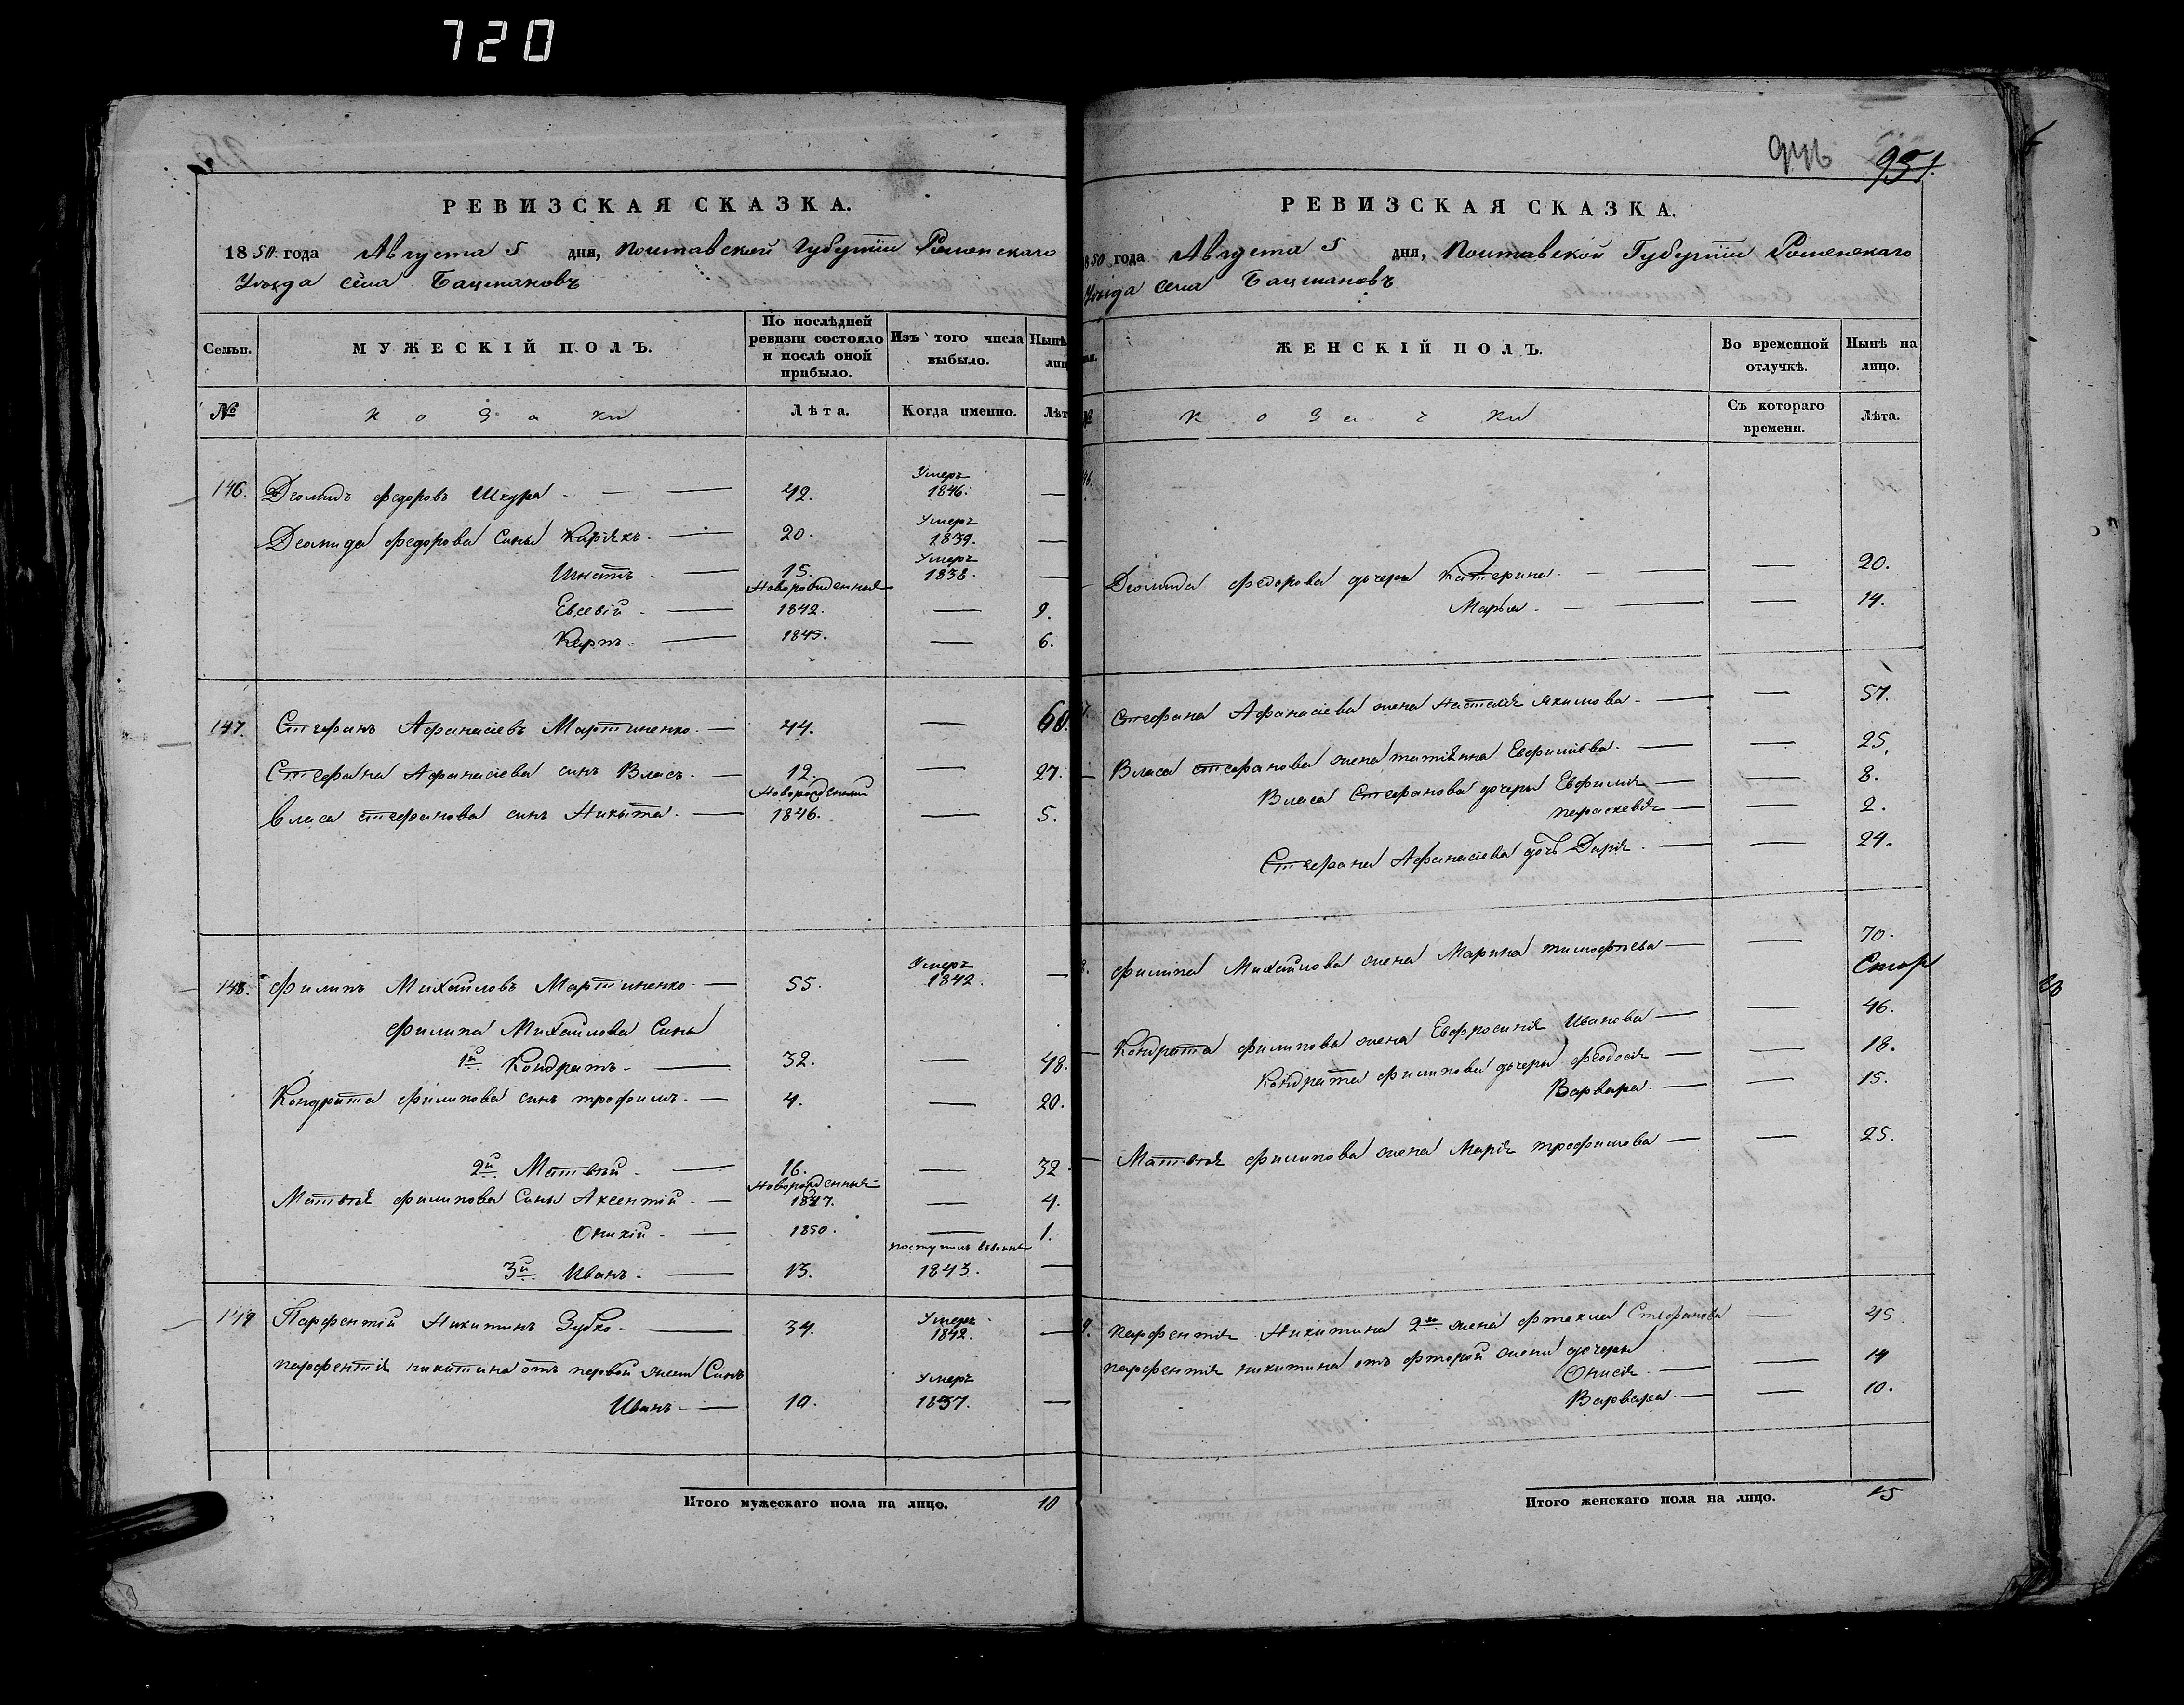 720
946 951.
РЕВИЗСКАЯ СКАЗКА.
1850 года Августа 5 дня, Полтавской Губернiи Роменскаго
Уѣзда села Бацмановъ
Семьи. МУЖЕСКІЙ ПОЛЪ. По послѣдней ревизіи состояло и послѣ оной прибыло. Изъ того числа выбыло. Нынѣ лиц
№ козаки Лѣта. Когда именно. Лѣт
146. Деомидъ Федоровъ Шкура. — 42. Умеръ 1846. —
Деомида Федорова сины Кирiякъ. — 20. Умеръ 1839. —
Игнатъ. — 15. Умеръ 1838. —
Новорожденные
Евсевiй. — 1842. — 9.
Карпъ. — 1845. — 6.
147. Стефанъ Афанасіевъ Мартиненко. — 44. — 60.
Стефана Афанасіева синъ Власъ. — 12. — 27.
Новорожденный
Власа Стефанова синъ Никита. — 1846. — 5.
148. Филипъ Михайловъ Мартиненко. — 55. Умеръ 1842. —
Филипа Михайлова Сины
1й. Кондратъ. — 32. — 48.
Кондрата Филипова синъ Трофимъ. — 4. — 20.
2й. Матвѣй. — 16. — 32.
Новорожденные
Матвѣя Филипова Сины Аксентiй. — 1847. — 4.
Оникiй. — 1850. — 1.
3й. Иванъ. — 13. поступилъ 1843. —
149 Парфентiй Никитинъ Зубко. — 34. Умеръ 1842. —
Парфентiя Никитина отъ первой жени Синъ
Иванъ. — 10. Умеръ 1837. —
Итого мужескаго пола на лицо. 10
РЕВИЗСКАЯ СКАЗКА.
850 года Августа 5 дня, Полтавской Губернiи Роменскаго
Уѣзда села Бацмановъ
ЖЕНСКІЙ ПОЛЪ. Во временной отлучкѣ. Нынѣ на лицо.
№ козачки Съ котораго времени. Лѣта.
46.
Деомида Федорова дочери Катерина. — — 20.
Марья. — — 14.
Стефана Афанасіева жена Настасiя Якимова. — — 57.
Власа Стефанова жена Татiянна Евфимiева. — — 25.
Власа Стефанова дочери Евфимiя — — 8.
Параскевiя — — 2.
Стефана Афанасіева дочь Дарiя. — — 24.
Филипа Михайлова жена Марина Тимофѣева — — 70.
Кондрата Филипова жена Евфросинiя Иванова — — 46.
Кондрата Филипова дочери Феодосiя — — 18.
Варвара. — — 15.
Матвѣя Филипова жена Марiя Трофимова — — 25.
9. Парфентiя Никитина 2я жена Фтекла Стефанова — 45.
Парфентiя Никитина отъ фторой жени дочери
Онисiя. — — 14
Варвара. — — 10.
Итого женскаго пола на лицо. 15